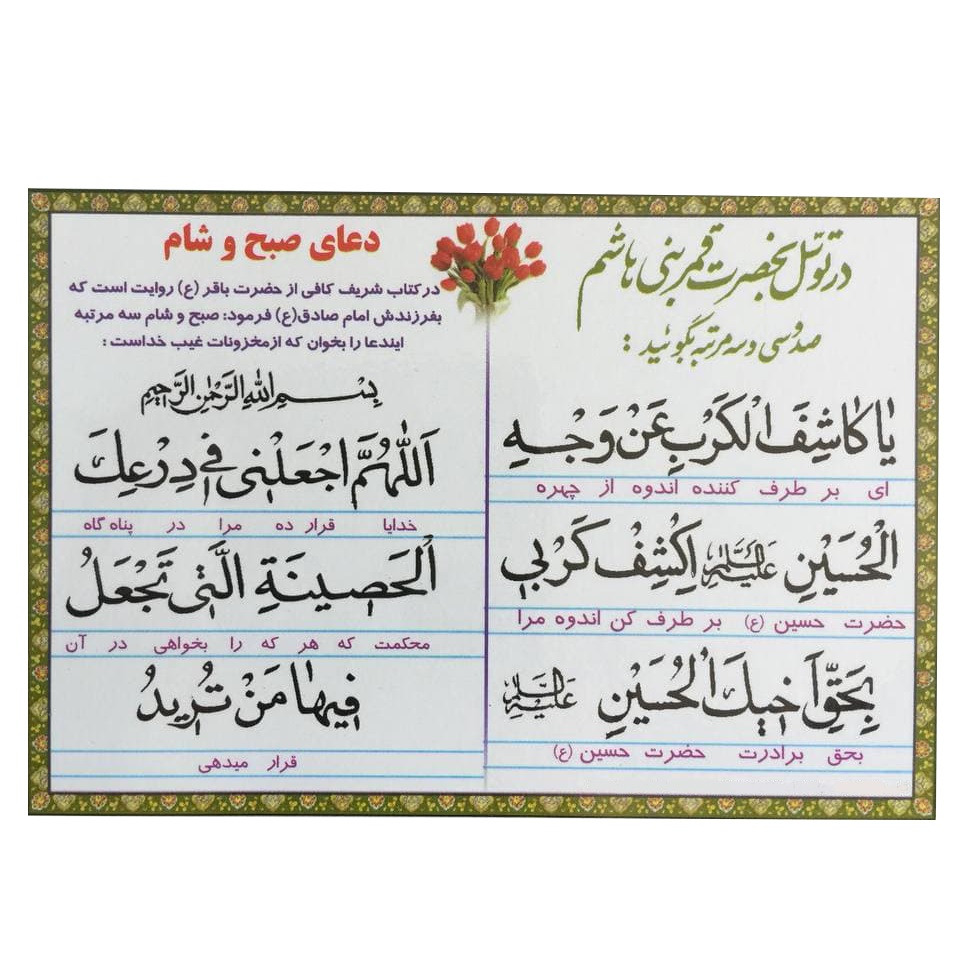 در توسّل بحضرت قمر بنی هاشم
صد و سی و سه مرتبه بگوئید :
يَا كَاشِفَ الْكَرْبِ عَنْ وَجْهِ
ای بر طرف کننده اندوه از چهره
الْحُسَيْنِ عَلَيْهِ السَّلَامُ اِكْشِفْ كَرْبِي
حضرت حسین (ع) بر طرف کن اندوه مرا
بِحَقِّ اَخِيكَ الْحُسَيْنِ عَلَيْهِ السَّلَامُ
بحق برادرت حضرت حسین (ع)
دعای صبح و شام
در کتاب شریف کافی از حضرت باقر (ع) روایت است که
بفرزندش امام صادق(ع) فرمود: صبح و شام سه مرتبه
ایندعا را بخوان که از مخزونات غیب خداست :
بِسْمِ اللهِ الرَّحْمٰنِ الرَّحِيمِ
اَللّٰهُمَّ اجْعَلْنِي فِي دِرْعِكَ
خدایا قرار ده مرا در پناه گاه
الْحَصِينَةِ الَّتِي تَجْعَلُ
محکمت که هر که را بخواهی در آن
فِيهَا مَنْ تُرِيدُ
قرار میدهی